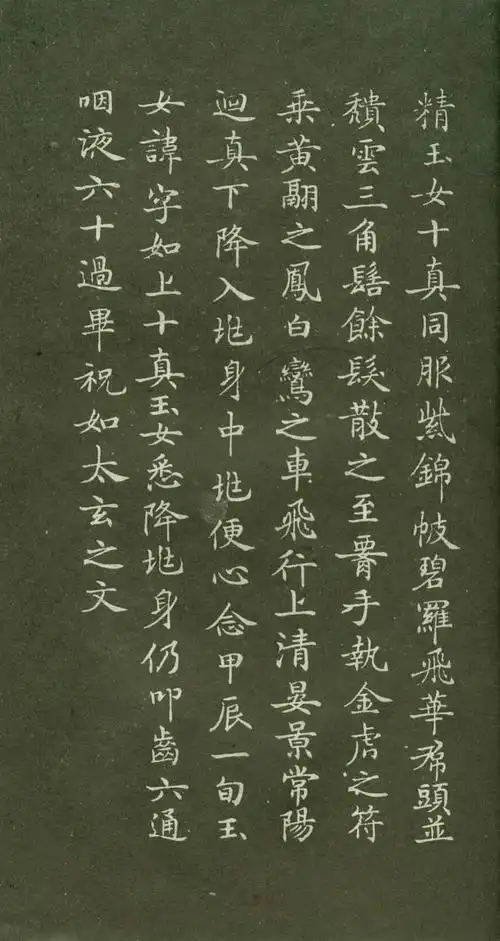 精玉女十真同服紫錦帔碧羅飛華帬頭並
頽雲三角髻餘髮散之至䑏手執金虎之符
乗黃翮之鳳白鸞之車飛行上清晏景常陽
迴真下降入兆身中兆便心念甲辰一旬玉
女諱字如上十真玉女悉降兆身仍叩齒六通
咽液六十過畢祝如太玄之文